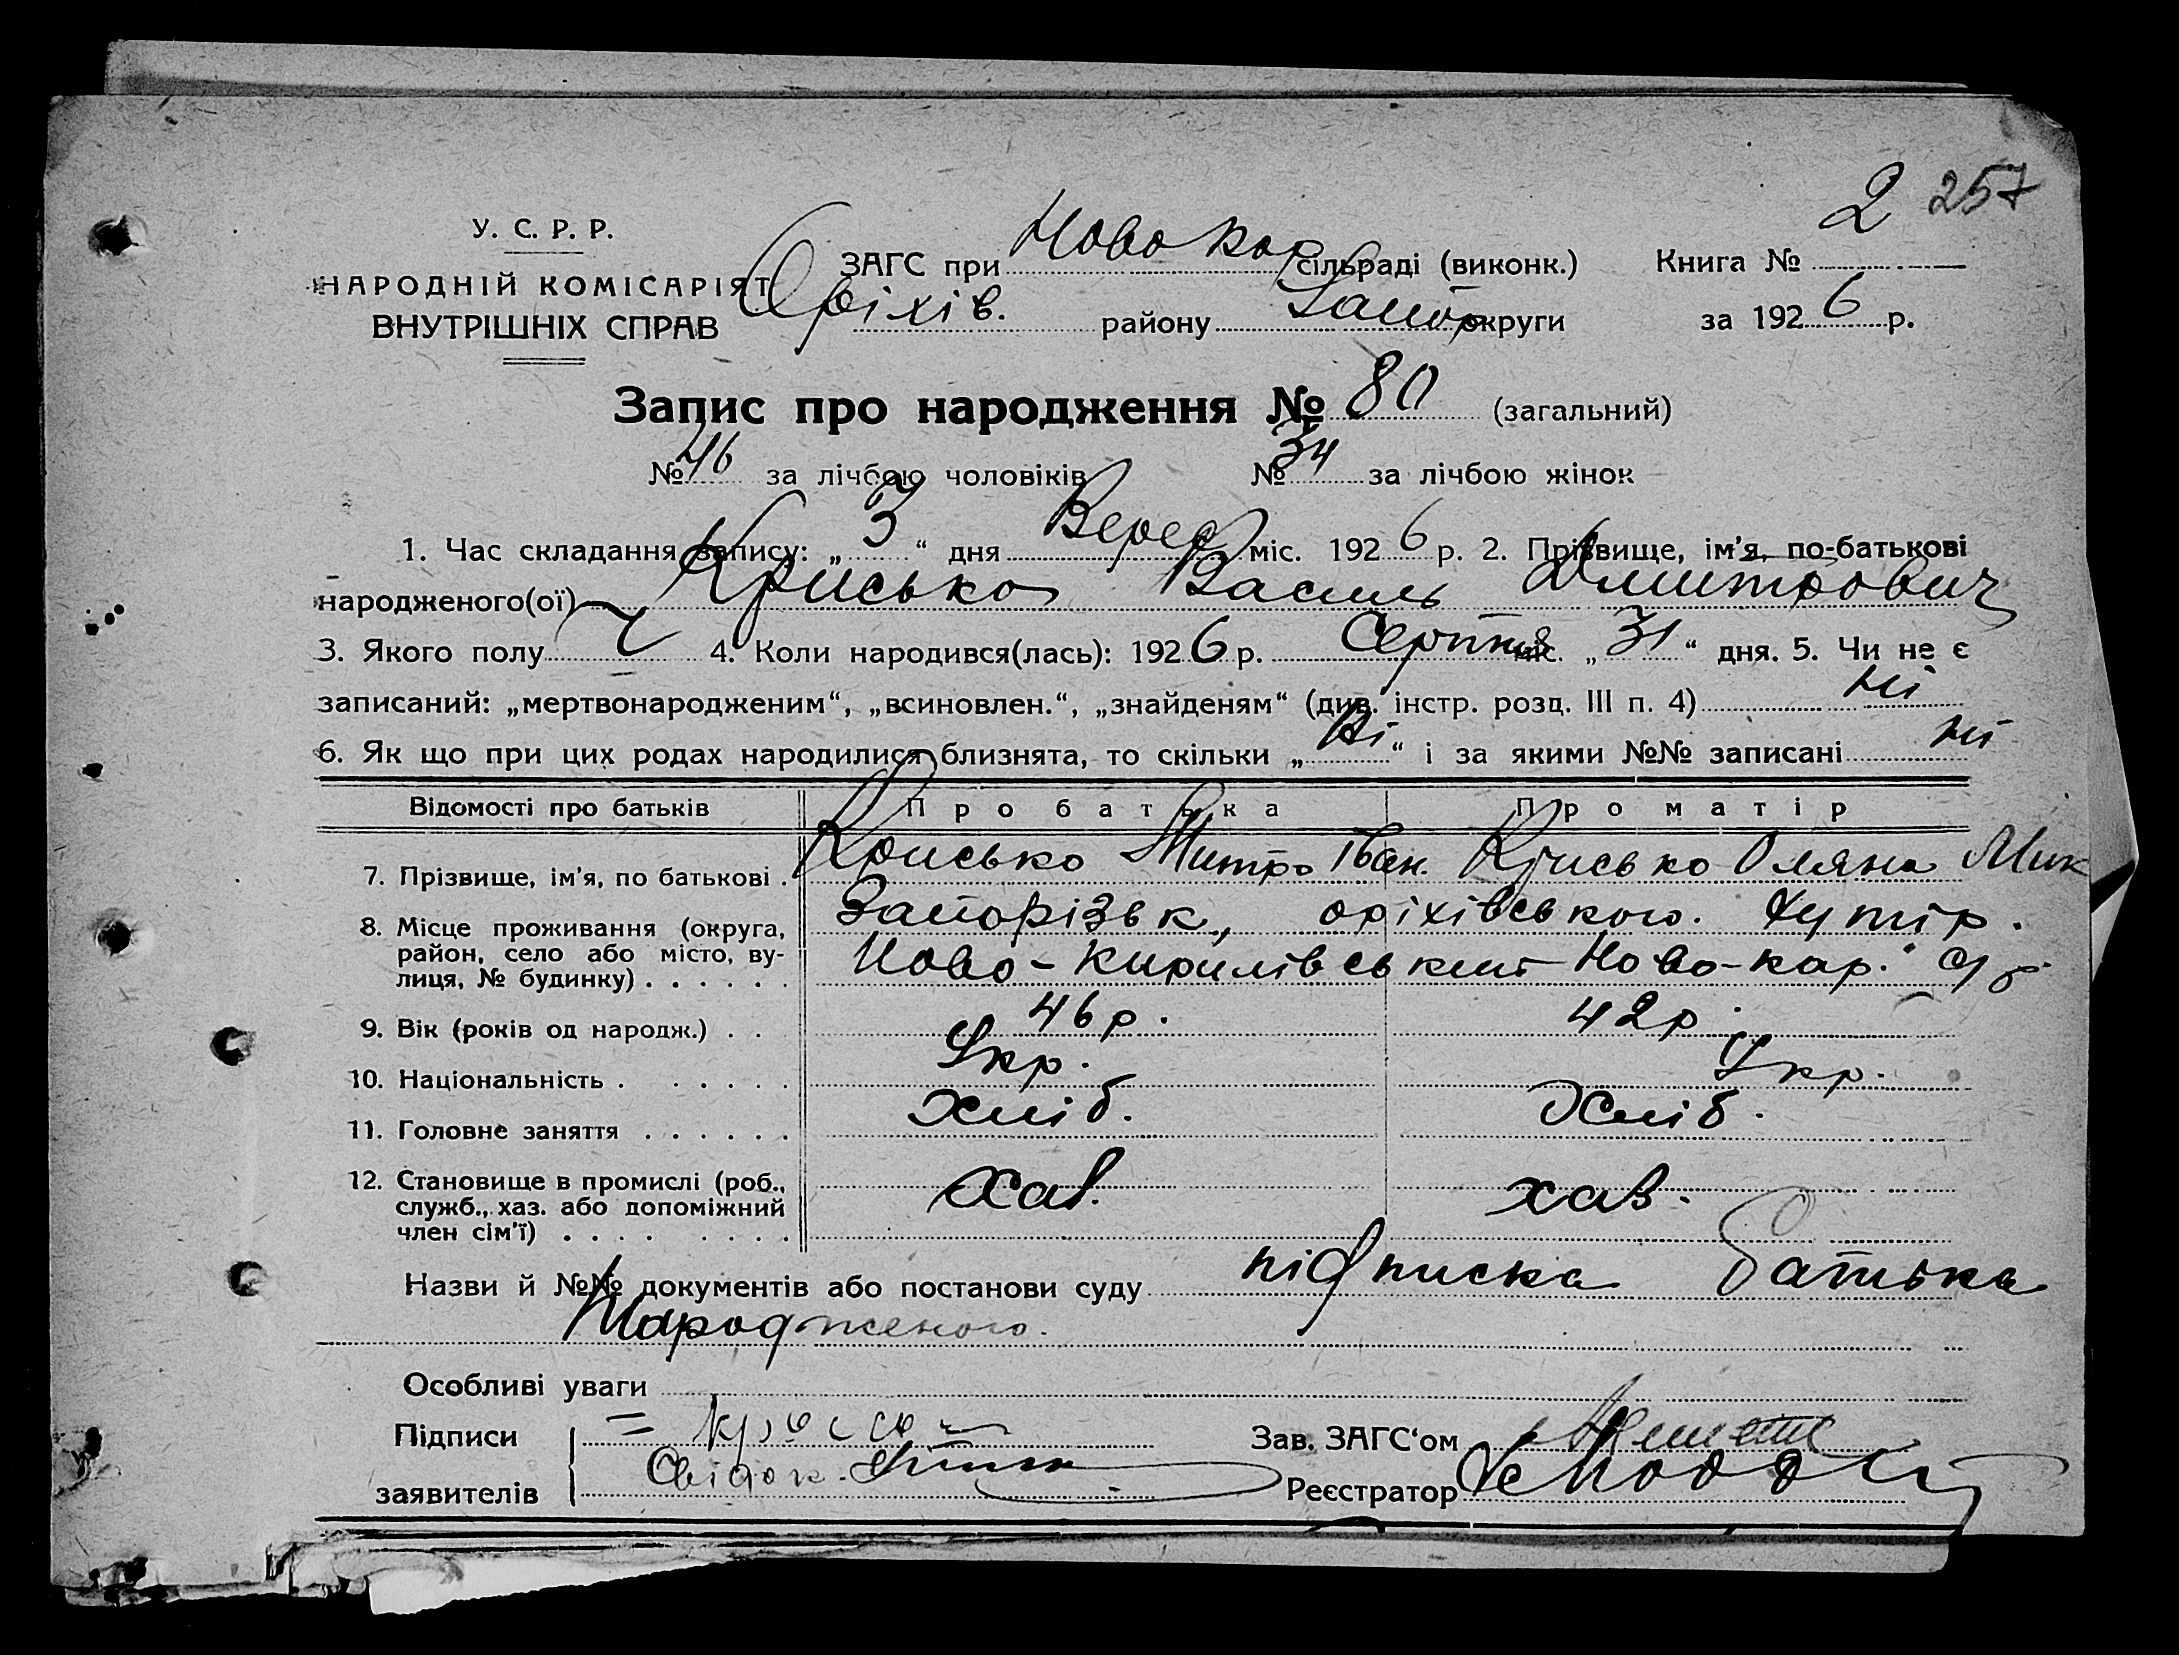 2 257
У. С. Р. Р.
НАРОДНІЙ КОМІСАРІЯТ
ВНУТРІШНІХ СПРАВ
ЗАГС при Ново Кар сільраді (виконк.) Книга №
Оріхів. району Запор округи за 1926 р.
Запис про народження № 80 (загальний)
№ 46 за лічбою чоловіків № 34 за лічбою жінок
1. Час складання запису: „3“ дня Верес міс. 1926 р. 2. Прізвище, ім'я, по-батькові
народженого(ої) Крисько Василь Дмитрович
3. Якого полу Ч 4. Коли народився(лась): 1926 р. Серпня міс. „31“ дня. 5. Чи не є
записаний: „мертвонародженим“, „всиновлен.“, „знайденям“ (див. інстр. розд. III п. 4) ні
6. Як що при цих родах народилися близнята, то скільки „Ні“ і за якими №№ записані ні
Відомості про батьків Про батька Про матір
7. Прізвище, ім'я, по батькові . Крисько Митро Іван. Крисько Оляна Мик
8. Місце проживання (округа, район, село або місто, вулиця, № будинку) . . . . . . Запорізьк, оріхівського. Хутір.
Ново-Кирилівський Ново-кар.
9. Вік (років од народж.) . . 46 р. 42 р.
10. Національність . . . . . . Укр. Укр.
11. Головне заняття . . . . . . хліб. Хліб.
12. Становище в промислі (роб., служб., хаз. або допоміжний член сім'ї) . . . . . . . . хаз. хаз.
Назви й №№ документів або постанови суду підписка батька
Народженого.
Особливі уваги
Підписи
заявителів
Свідок.
Зав. ЗАГС'ом
Реєстратор